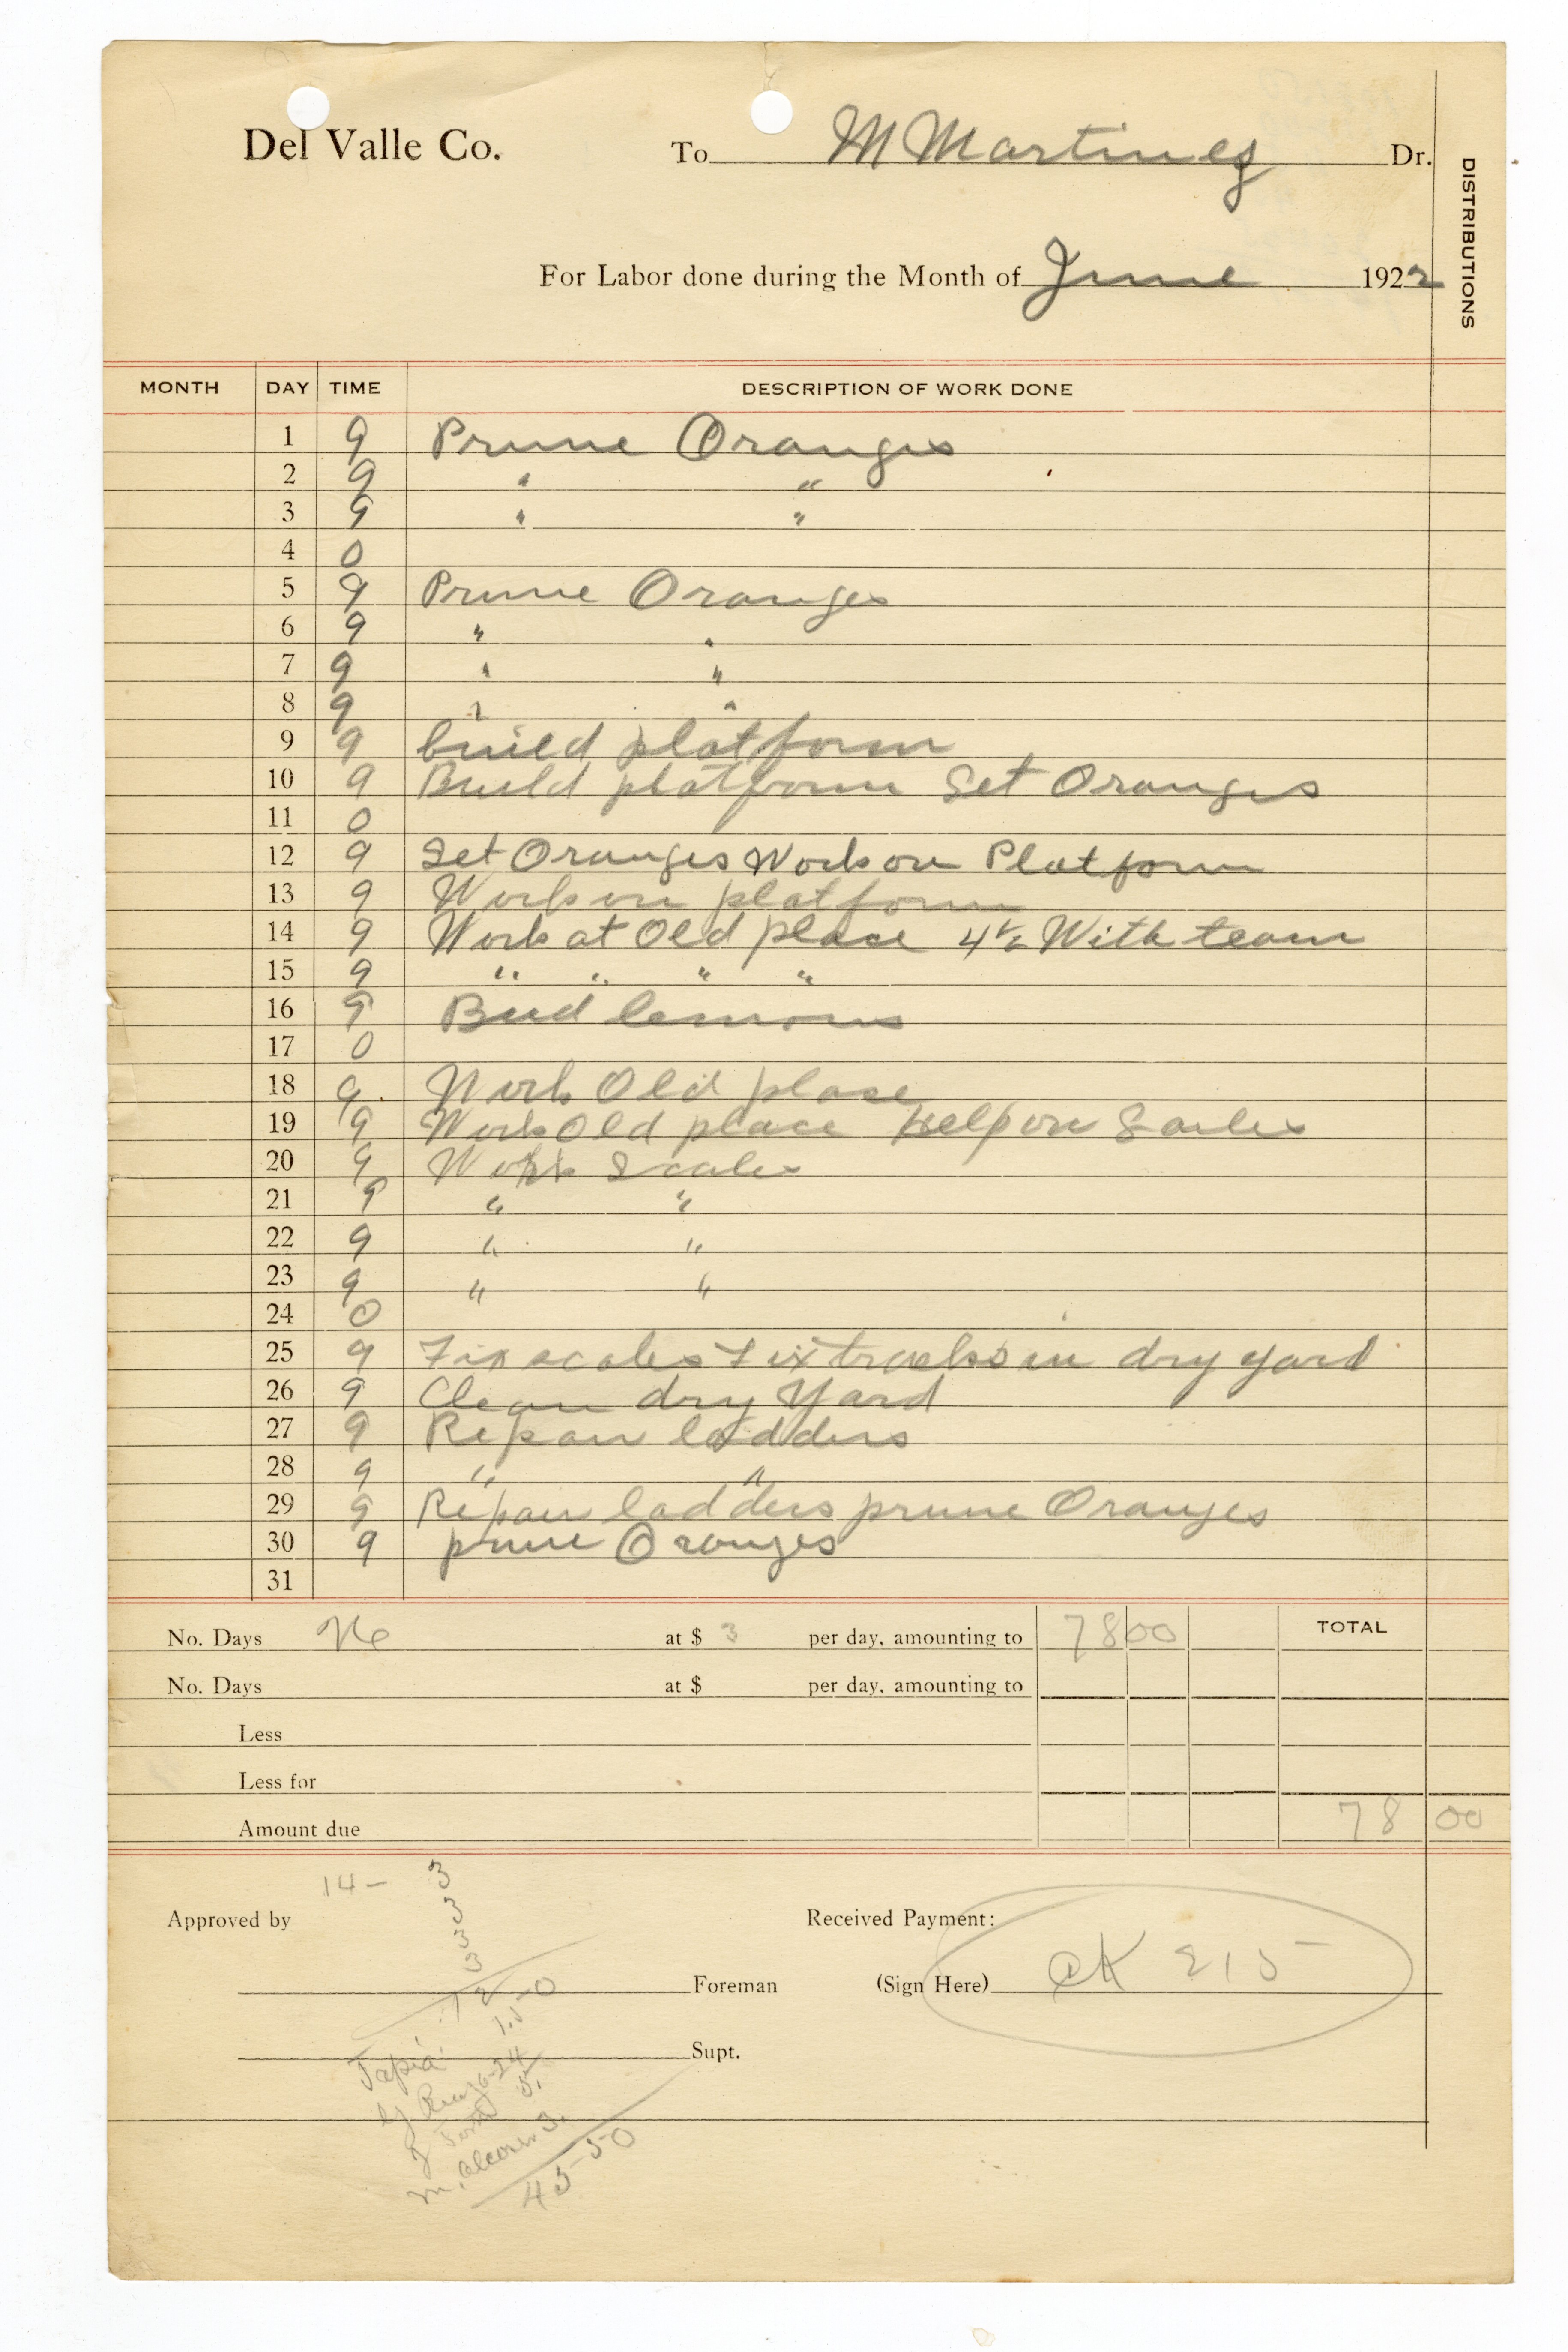 Del Valle Co. To M Martinez Dr.
DISTRIBUTIONS
For Labor done during the Month of June 1922
MONTH DAY TIME DESCRIPTION OF WORK DONE
1 9 Prune Oranges
2 9 " "
3 9 " "
4 0
5 9 Prune Oranges
6 9 " "
7 9 " "
8 9 " "
9 9 build platform
10 9 Build platform Set Oranges
11 0
12 9 Set Oranges Work on Platform
13 9 Work on platform
14 9 Work at Old place 4½ With team
15 9 " " " "
16 9 Bud lemons
17 0
18 9 Work Old place
19 9 Work Old place Help on Scales
20 9 Work Scales
21 9 " "
22 9 " "
23 9 " "
24 0
25 9 Fix scales Fix tracks in dry yard
26 9 Clean dry Yard
27 9 Repair ladders
28 9 " "
29 9 Repair ladders prune Oranges
30 9 prune Oranges
31
No. Days 26 at $ 3 per day, amounting to 78 00 TOTAL
No. Days at $ per day, amounting to
Less
Less for
Amount due 78 00
14 –
3
3
3
3
12
Approved by Received Payment:
Foreman (Sign Here) CK 215
Supt.
Tapia 1.50
24
5.
M. 3.
45 50